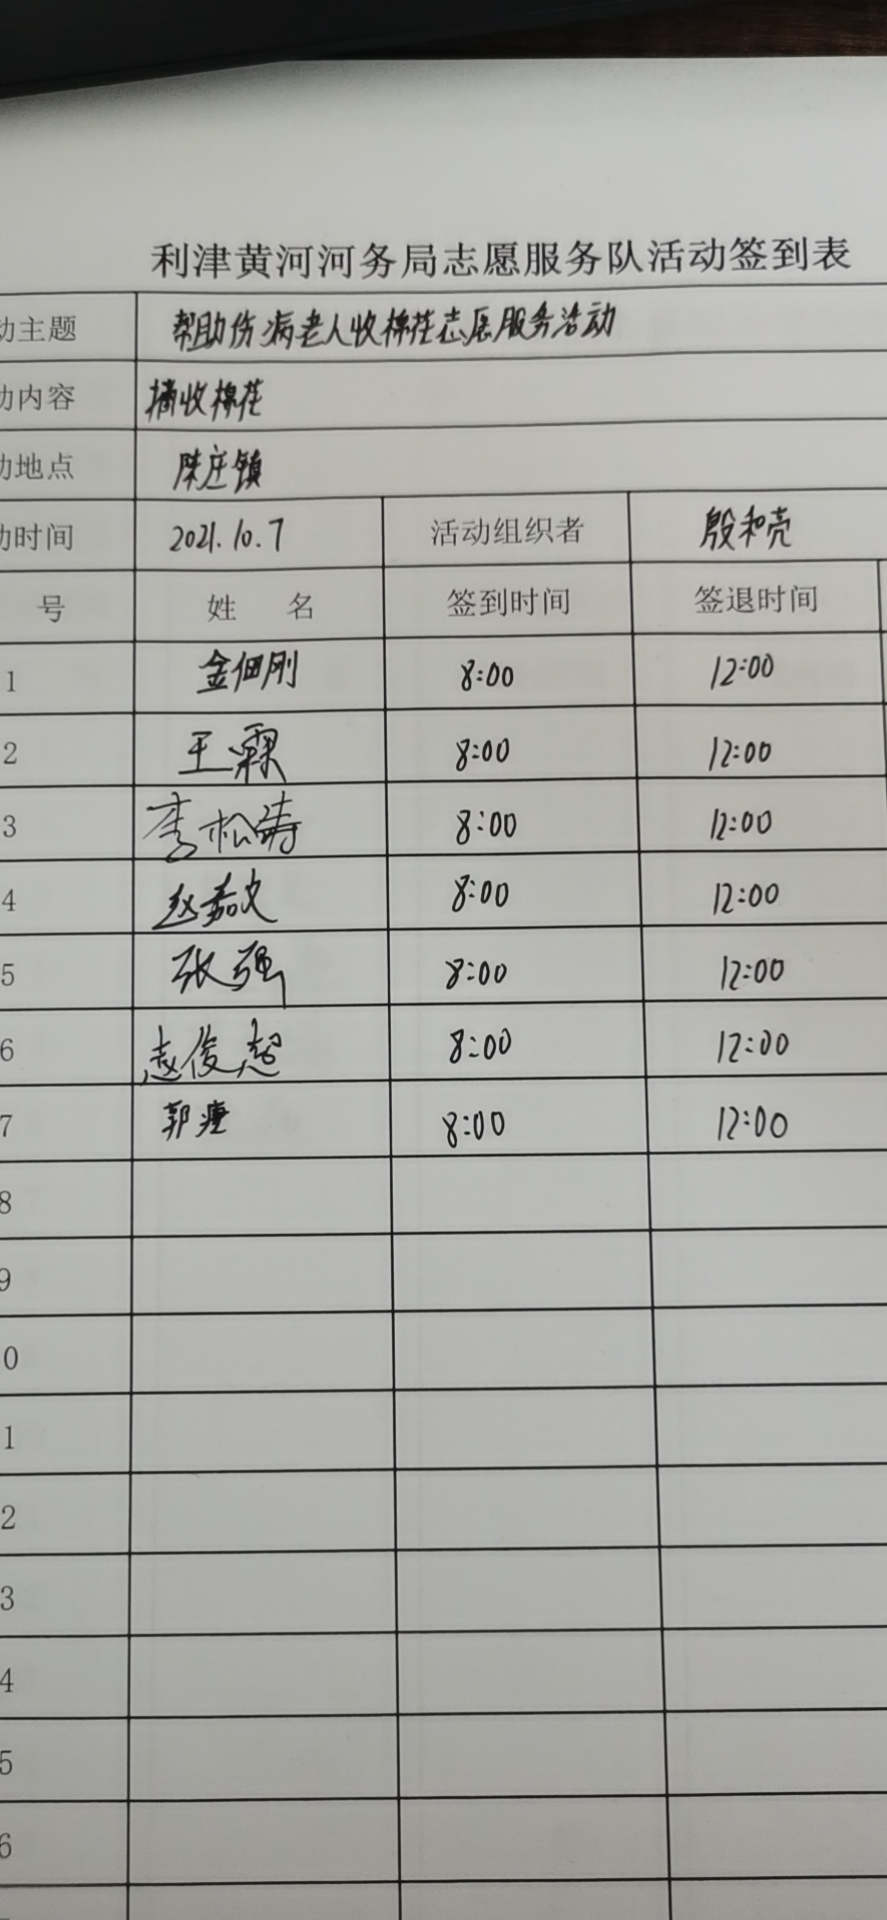 利津黄河河务局志愿服务队活动签到表
动主题 帮助伤病老人收棉花志愿服务活动
动内容 摘收棉花
动地点 陈庄镇
动时间 2021.10.7 活动组织者 殷和亮
号 姓 名 签到时间 签退时间
1 金佃刚 8:00 12:00
2 王霖 8:00 12:00
3 李松涛 8:00 12:00
4 赵 8:00 12:00
5 张强 8:00 12:00
6 赵俊超 8:00 12:00
7 郭 8:00 12:00
8
9
0
1
2
3
4
5
6